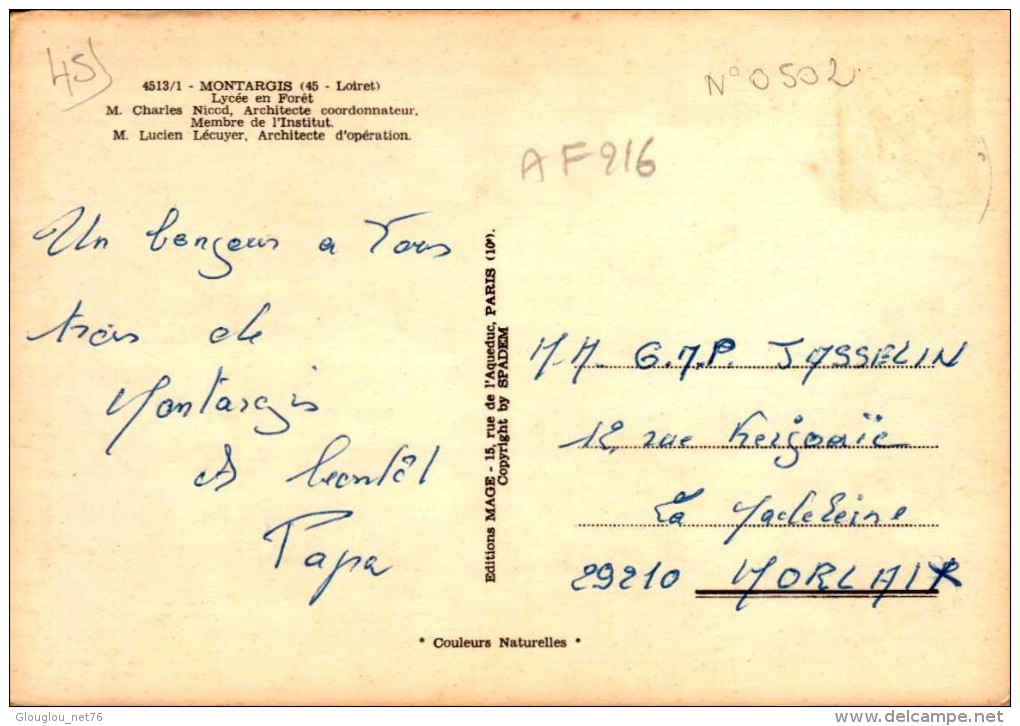 45)
4513/1 - MONTARGIS (45 - Loiret)
Lycée en Forêt
M. Charles Niccd, Architecte coordonnateur,
Membre de l'Institut.
M. Lucien Lécuyer, Architecte d'opération.
N° 0502
AF216
Un bonjour a Vous
trois de
Montargis
A bientôt
Papa
Editions MAGE - 15, rue de l'Aqueduc, PARIS (10e).
Copyright by SPADEM
M.M. G.M.P. JASSELIN
12, rue
La Madeleine
29210 MORLAIX
* Couleurs Naturelles *
Glouglou_net76
www.delcampe.net